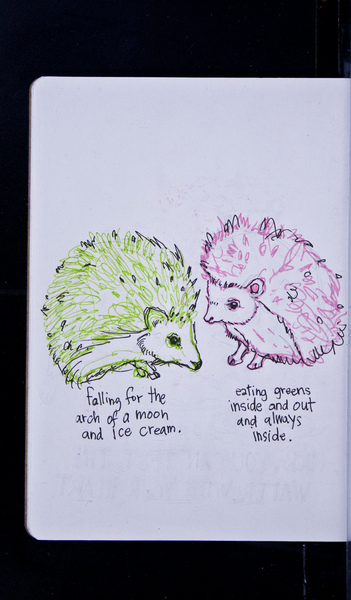 falling for the
arch of a moon
and ice cream.
eating greens
inside and out
and always
inside.